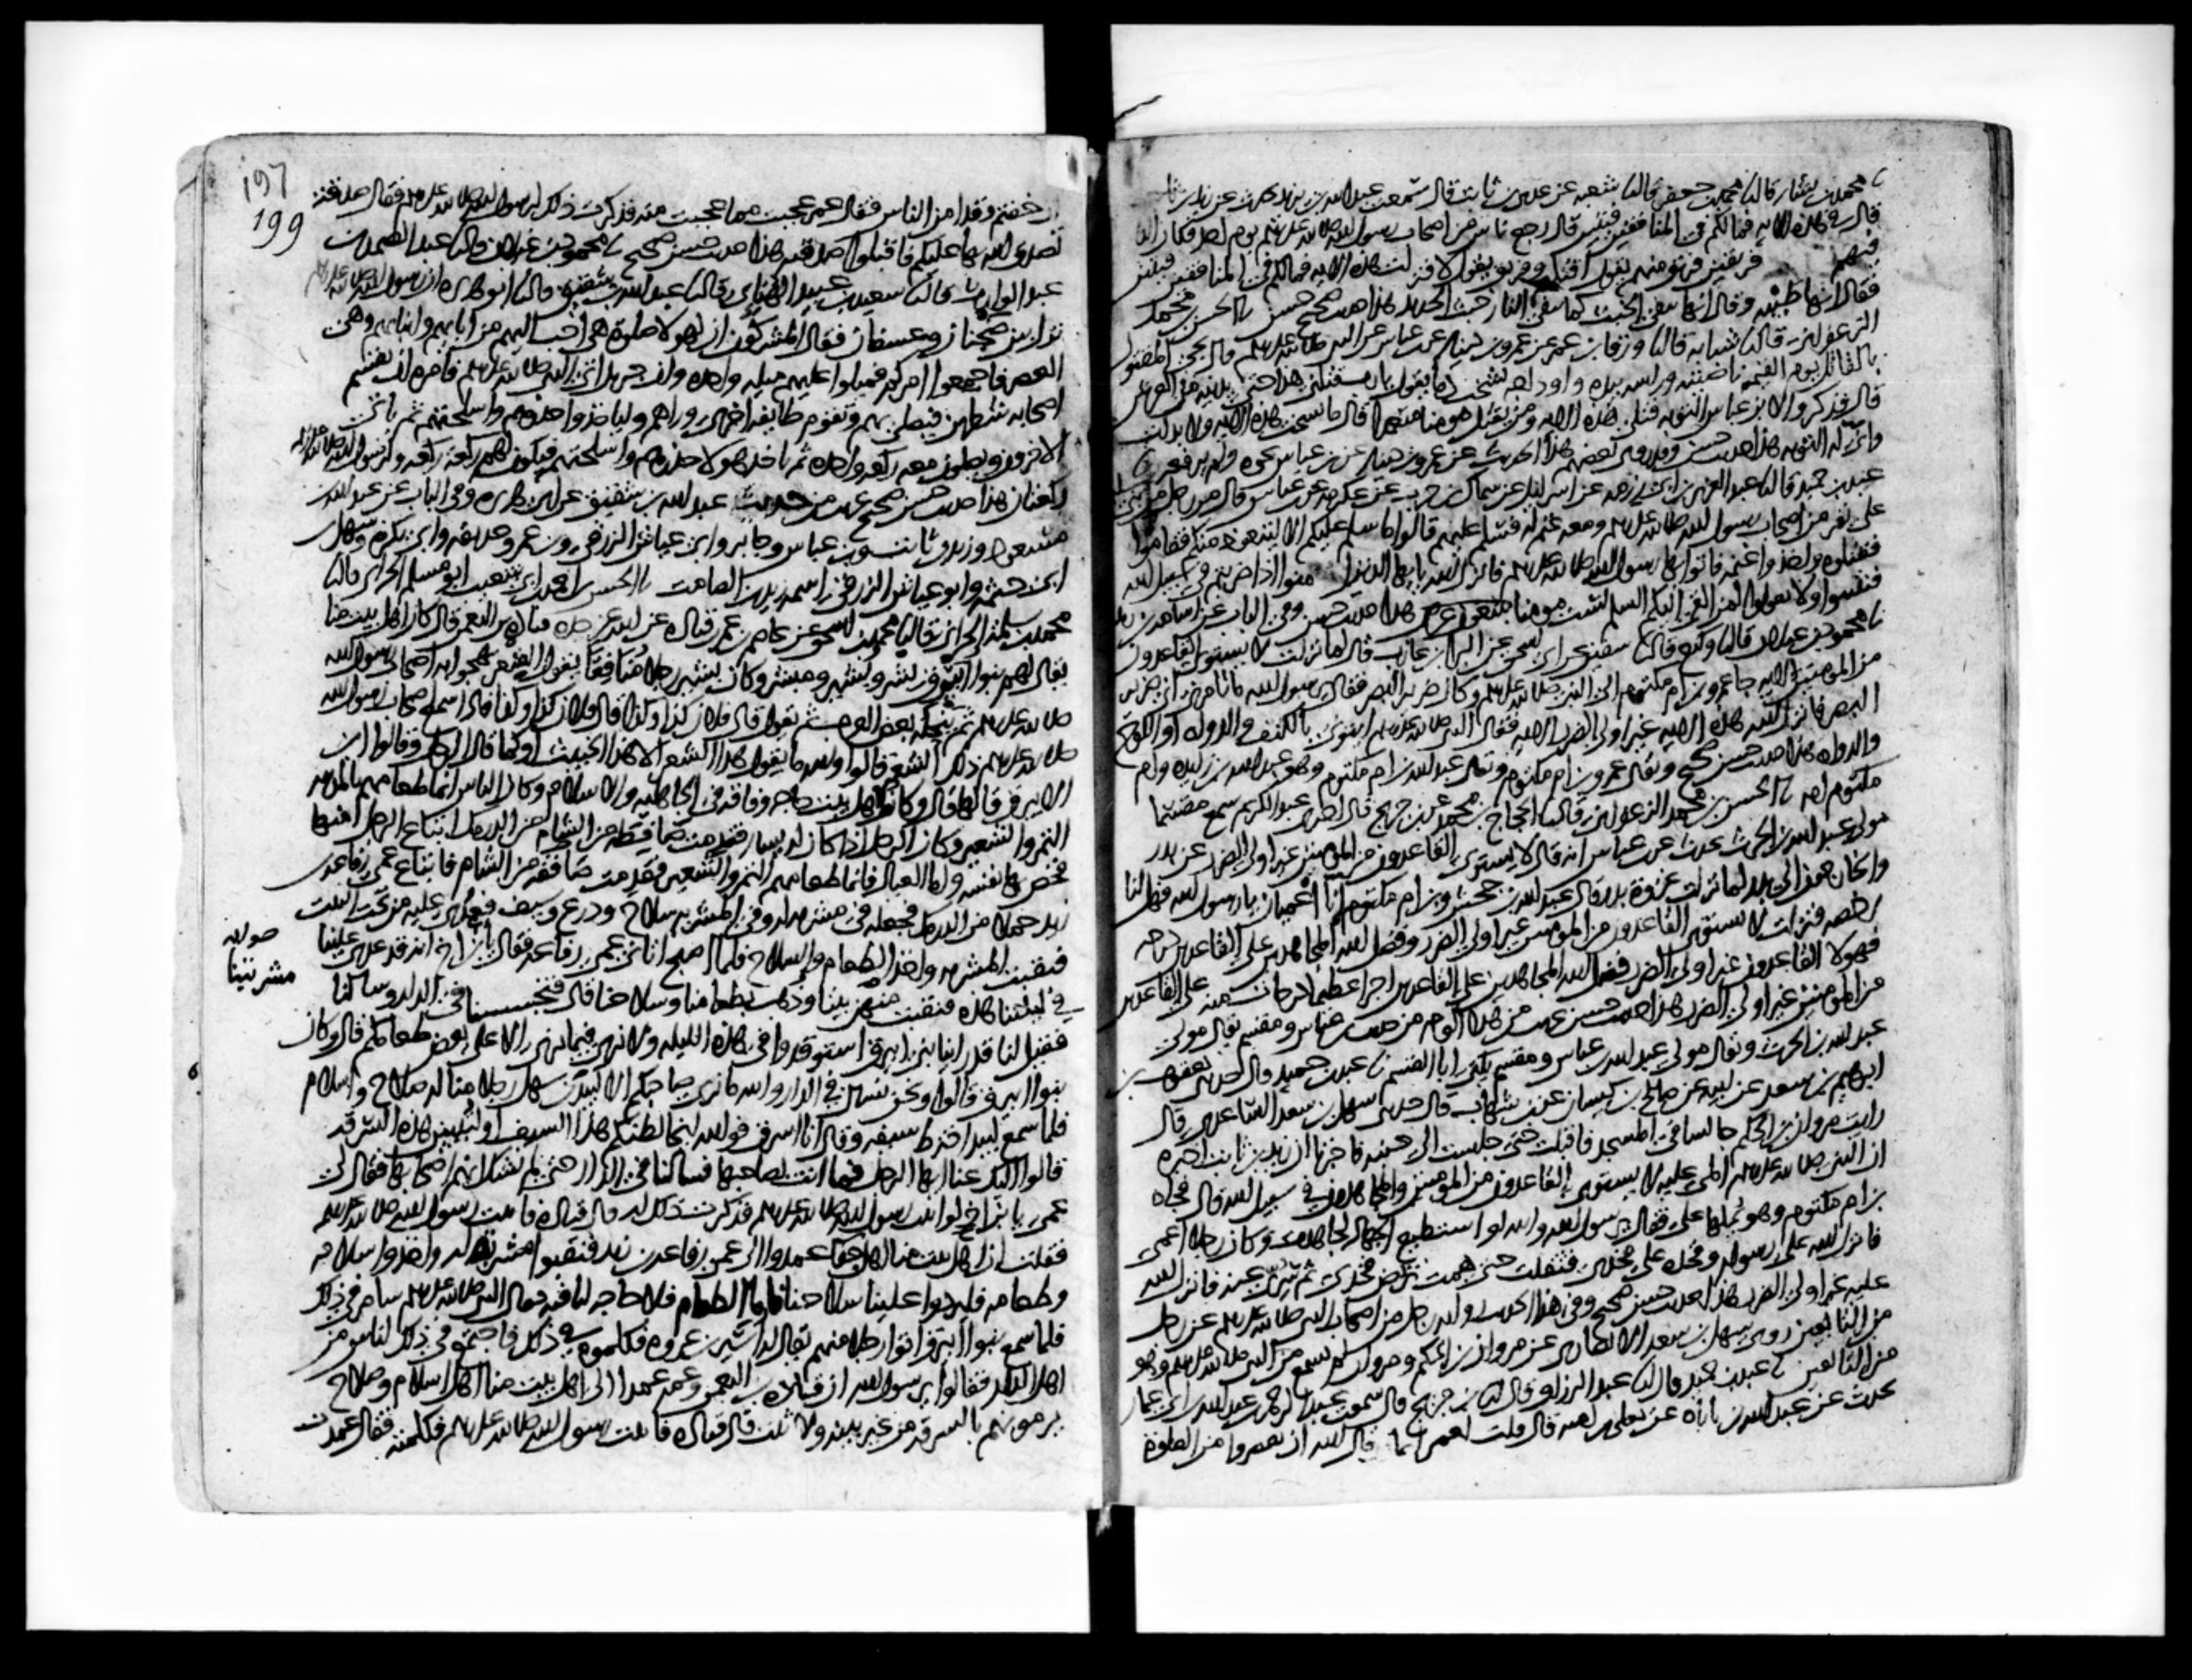 محمد بن بشار قال نا محمد بن جعفر قال نا شعبه عن عدي بن ثابت قال سمعت عبد الله بن يزيد يحدث عن زيد بن ثابت
قال في هذه الايه فما لكم في المنافقين فئتين قال رجع ناس من اصحاب رسول الله صلى الله عليه وسلم يوم احد فكان الناس
فيهم فريقين فريق منهم يقول اقتلهم وفريق يقول لا فنزلت هذه الايه فما لكم في المنافقين فئتين
فقال انها طيبه وقال انها تنفي الخبث كما تنفي النار خبث الحديد هذا حديث حسن صحيح نا الحسن بن محمد
الزعفراني قال نا شبابه قال نا ورقا بن عمر عن عمرو بن دينار عن ابن عباس عن النبي صلى الله عليه وسلم قال يجي المقتول
بالقاتل يوم القيمه ناصيته وراسه بيده واوداجه تشخب دما يقول يا رب قتلني هذا حتى يدنيه من العرش
قال فذكروا لابن عباس التوبه فتلا هذه الايه ومن يقتل مومنا متعمدا قال ما نسخت هذه الايه ولا بدلت
واني له التوبه هذا حديث حسن وقد روى بعضهم هذا الحديث عن عمرو بن دينار عن ابن عباس نحوه ولم يرفعه نا
عبد بن حميد قال نا عبد العزيز بن ابي رزمه عن اسرائيل عن سماك بن حرب عن عكرمه عن ابن عباس قال مر رجل من بني
على نفر من اصحاب رسول الله صلى الله عليه وسلم ومعه غنم له فسلم عليهم قالوا ما سلم عليكم الا ليتعوذ منكم فقاموا
فقتلوه واخذوا غنمه فاتوا بها رسول الله صلى الله عليه وسلم فانزل الله يا ايها الذين امنوا اذا ضربتم في سبيل الله
فتبينوا ولا تقولوا لمن القى اليكم السلم لست مومنا هذا حديث حسن وفي الباب عن اسامه بن زيد
نا محمود بن غيلان قال نا وكيع قال نا سفين عن ابي اسحق عن البرا بن عازب قال لما نزلت لا يستوي القاعدون
من المومنين الايه جا عمرو بن ام مكتوم الى النبي صلى الله عليه وسلم وكان ضرير البصر فقال يا رسول الله ما تامرني اني ضرير
البصر فانزل الله هذه الايه غير اولي الضرر الايه فقال النبي صلى الله عليه وسلم ايتوني بالكتف والدواه او اللوح
والدواه هذا حديث حسن صحيح ويقال عمرو بن ام مكتوم ويقال عبد الله بن ام مكتوم وهو عبد الله بن زايده وام
مكتوم امه نا الحسن بن محمد الزعفراني قال نا الحجاج بن محمد عن ابن جريج قال اخبرني عبد الكريم سمع مقسما
مولى عبد الله بن الحرث يحدث عن ابن عباس انه قال لا يستوي القاعدون من المومنين غير اولي الضرر عن بدر
والخارجون الى بدر لما نزلت غزوة بدر قال عبد الله بن جحش وابن ام مكتوم انا اعميان يا رسول الله فهل لنا
رخصه فنزلت لا يستوي القاعدون من المومنين غير اولي الضرر وفضل الله المجاهدين على القاعدين درجه
فهولا القاعدون غير اولي الضرر وفضل الله المجاهدين على القاعدين اجرا عظيما درجات منه على القاعدين
من المومنين غير اولي الضرر هذا حديث حسن غريب من هذا الوجه من حديث ابن عباس ومقسم يقال مولى
عبد الله بن الحرث ويقال مولى عبد الله بن عباس ومقسم يكنى ابا القسم نا عبد بن حميد قال حدثني يعقوب بن
ابرهيم بن سعد عن ابيه عن صالح بن كيسان عن ابن شهاب قال حدثني سهل بن سعد الساعدي قال
رايت مروان بن الحكم جالسا في المسجد فاقبلت حتى جلست الى جنبه فاخبرنا ان زيد بن ثابت اخبره
ان النبي صلى الله عليه وسلم املى عليه لا يستوي القاعدون من المومنين والمجاهدون في سبيل الله قال فجاه
بن ام مكتوم وهو يملها علي فقال يا رسول الله والله لو استطيع الجهاد لجاهدت وكان رجلا اعمى
فانزل الله على رسوله وفخذه على فخذي فثقلت حتى همت ترض فخذي ثم سري عنه فانزل الله
عليه غير اولي الضرر هذا حديث حسن صحيح وفي هذا الحديث روايه رجل من اصحاب النبي صلى الله عليه وسلم عن رجل
من التابعين روى سهل بن سعد الانصاري عن مروان بن الحكم ومروان لم يسمع من النبي صلى الله عليه وسلم وهو
من التابعين نا عبد بن حميد قال نا عبد الرزاق قال نا ابن جريج قال سمعت عبد الرحمن بن عبد الله بن ابي عمار
يحدث عن عبد الله بن باباه عن يعلى بن اميه قال قلت لعمر انما قال الله ان تقصروا من الصلوة
197
199
ان خفتم وقد امن الناس فقال عمر عجبت مما عجبت منه فذكرت ذلك لرسول الله صلى الله عليه وسلم فقال صدقه
تصدق الله بها عليكم فاقبلوا صدقته هذا حديث حسن صحيح نا محمود بن غيلان قال نا عبد الصمد بن
عبد الوارث قال نا سعيد بن عبيد الهنائي قال نا عبد الله بن شقيق قال نا ابو هريره ان رسول الله صلى الله عليه وسلم
نزل بين ضجنان وعسفان فقال المشركون ان لهولا صلوة هي احب اليهم من ابايهم وابنايهم وهي
العصر فاجمعوا امركم فميلوا عليهم ميله واحده وان جبريل اتى النبي صلى الله عليه وسلم فامره ان يقسم
اصحابه شطرين فيصلي بهم وتقوم طايفه اخرى وراهم ولياخذوا حذرهم واسلحتهم ثم ياتي
الاخرون ويصلون معه ركعه واحده ثم ياخذ هولا حذرهم واسلحتهم فيكون لهم ركعه ركعه ولرسول الله صلى الله عليه وسلم
ركعتان هذا حديث حسن صحيح غريب من حديث عبد الله بن شقيق عن ابي هريره وفي الباب عن عبد الله بن
مسعود وزيد بن ثابت وابن عباس وجابر وابي عياش الزرقي وابن عمر وحذيفه وابي بكره وسهل
ابن ابي حثمه وابو عياش الزرقي اسمه زيد بن الصامت نا الحسن بن احمد بن ابي شعيب ابو مسلم الحراني قال نا
محمد بن سلمه الحراني قال نا محمد بن اسحق عن عاصم بن عمر بن قتاده عن ابيه عن جده قتاده بن النعمن قال كان اهل بيت منا
يقال لهم بنو ابيرق بشر وبشير ومبشر وكان بشير رجلا منافقا يقول الشعر يهجو به اصحاب رسول الله
صلى الله عليه وسلم ثم ينحله بعض العرب ثم يقول قال فلان كذا وكذا قال فلان كذا وكذا فاذا سمع اصحاب رسول الله
صلى الله عليه وسلم ذلك الشعر قالوا والله ما يقول هذا الشعر الا هذا الخبيث او كما قال الرجل وقالوا ابن
الابيرق قالها قال وكانوا اهل بيت حاجه وفاقه في الجاهليه والاسلام وكان الناس انما طعامهم بالمدينه
التمر والشعير وكان الرجل اذا كان له يسار فقدمت ضافطه من الشام من الدرمك ابتاع الرجل منها
فخص بها نفسه واما العيال فانما طعامهم التمر والشعير فقدمت ضافطه من الشام فابتاع عمي رفاعه بن
زيد حملا من الدرمك فجعله في مشربه له وفي المشربه سلاح ودرع وسيف فعدي عليه من تحت البيت
فنقبت المشربه واخذ الطعام والسلاح فلما اصبح اتاني عمي رفاعه فقال يا ابن اخي انه قد عدي علينا
في ليلتنا هذه فنقبت مشربتنا وذهب بطعامنا وسلاحنا قال فتحسسنا في الدار وسالنا
صوابه
مشربتنا
فقيل لنا قد راينا بني ابيرق استوقدوا في هذه الليله ولا نرى فيما نرى الا على بعض طعامكم قال وكان
بنو ابيرق قالوا ونحن نسال في الدار والله ما نرى صاحبكم الا لبيد بن سهل رجلا منا له صلاح واسلام
فلما سمع لبيد اخترط سيفه وقال انا اسرق فوالله ليخالطنكم هذا السيف او لتبينن هذه السرقه
قالوا اليك عنا ايها الرجل فما انت بصاحبها فسالنا في الدار حتى لم نشك انهم اصحابها فقال لي
عمي يا ابن اخي لو اتيت رسول الله صلى الله عليه وسلم فذكرت ذلك له قال قتاده فاتيت رسول الله صلى الله عليه وسلم
فقلت ان اهل بيت منا اهل جفا عمدوا الى عمي رفاعه بن زيد فنقبوا مشربه له واخذوا سلاحه
وطعامه فليردوا علينا سلاحنا فاما الطعام فلا حاجه لنا فيه فقال النبي صلى الله عليه وسلم سامر في ذلك
فلما سمع بنو ابيرق اتوا رجلا منهم يقال له اسير بن عروه فكلموه في ذلك فاجتمع في ذلك اناس من
اهل الدار فقالوا يا رسول الله ان قتاده بن النعمن وعمه عمدا الى اهل بيت منا اهل اسلام وصلاح
يرمونهم بالسرقه من غير بينه ولا ثبت قال قتاده فاتيت رسول الله صلى الله عليه وسلم فكلمته فقال عمدت